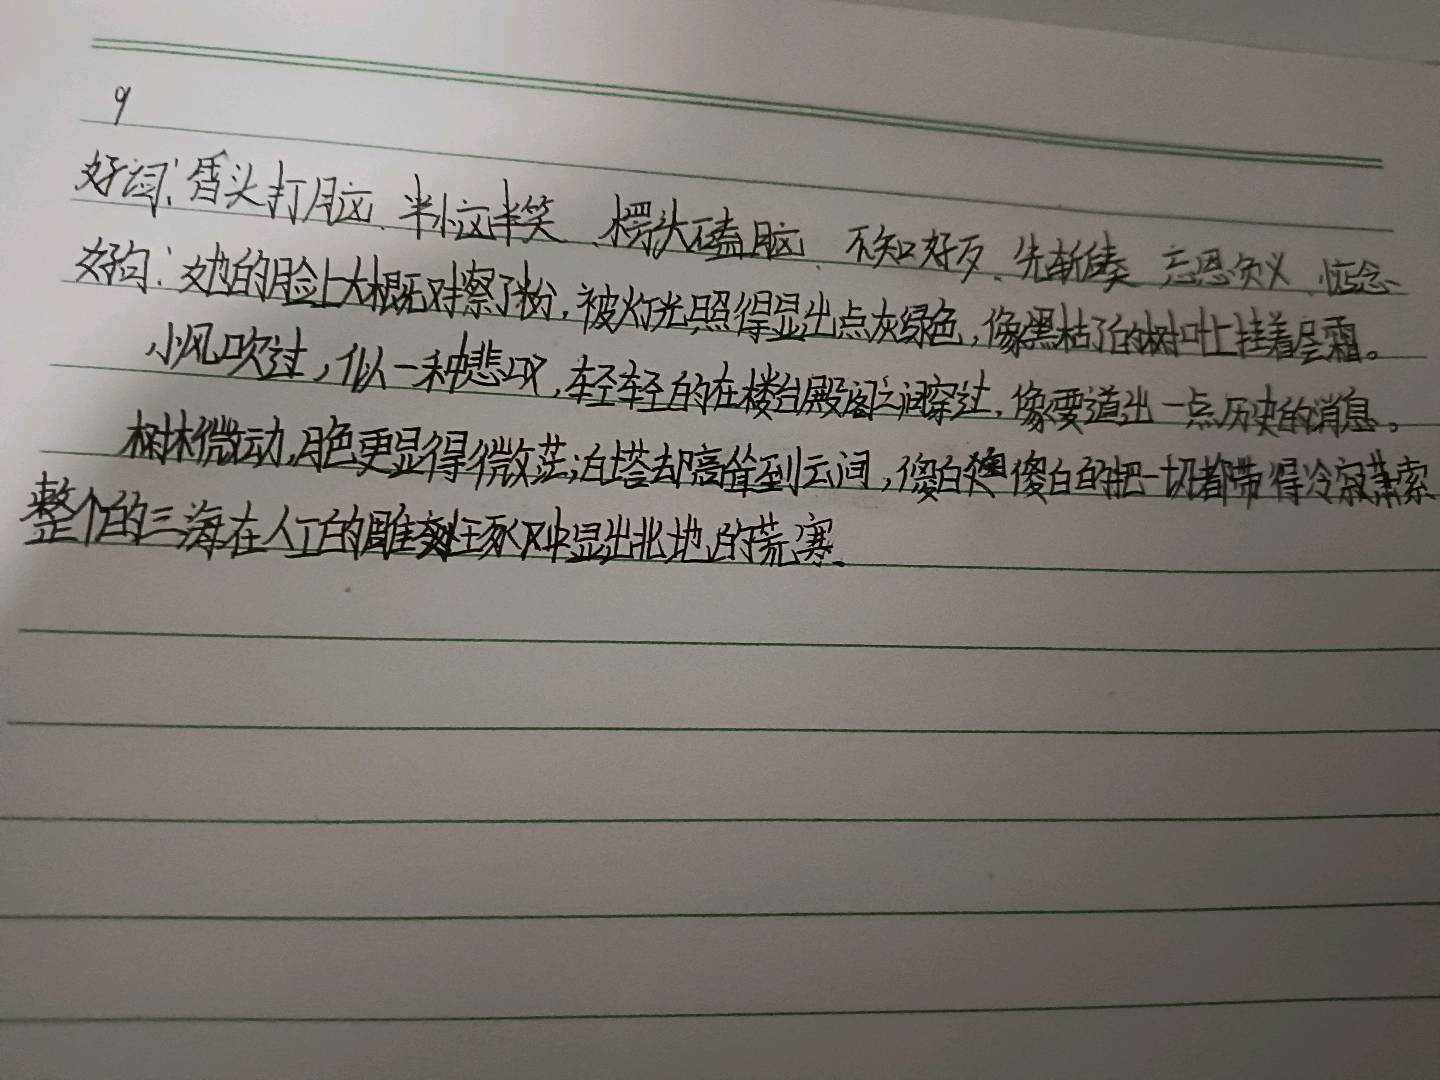 9
好词：昏头打脑、半恼半笑、楞头磕脑、不知好歹、先斩后奏、忘恩负义、惦念、
好句：她的脸上大概又对擦了粉，被灯光照得显出点灰绿色，像黑枯了的树叶上挂着层霜。
小风吹过，似一种悲叹，轻轻的在楼台殿阁之间穿过，像要道出一点历史的消息。
树林微动，月色更显得微茫；白塔却高耸到云间，傻白傻白的把一切都带得冷寂萧索
整个的三海在人工的雕琢中显出北地的荒寒、